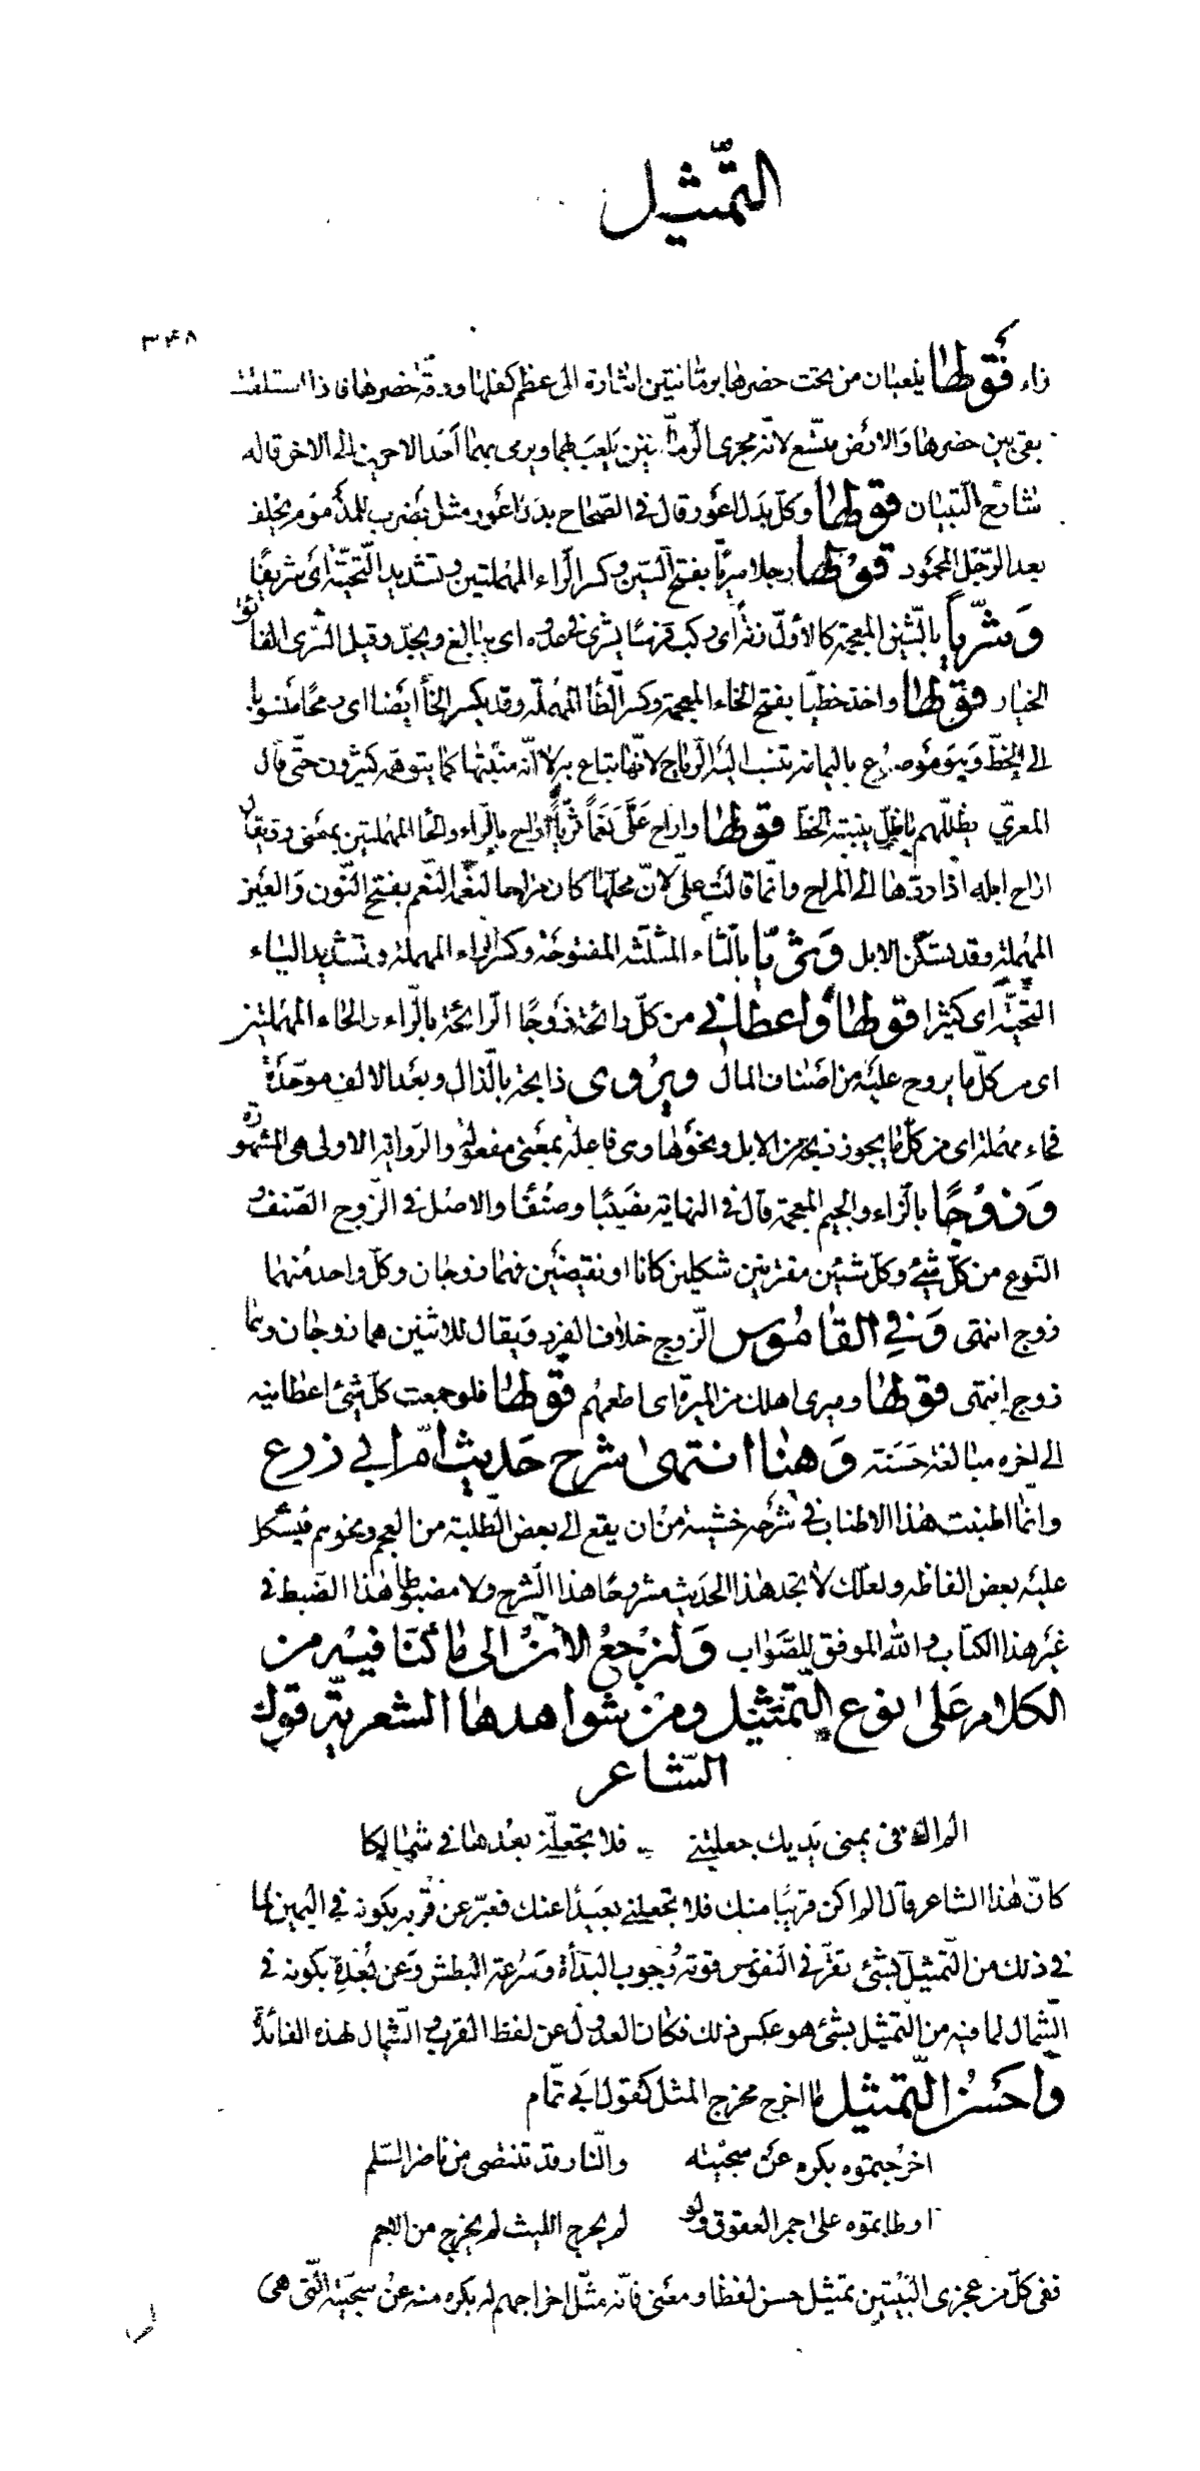 التّمثيل
٣٤٨
زاء فَقَولها يلعبان من تحت خضرها برمّانتين اشارة الى عظم كفلها ودقّة خضرها فاذا استلقت
بقى بين خضرها والارض متّسع لانّه مجرى الرمّانتين يلعب بهما ويرمى بهما احد الاخوين الى الاخر قاله
شارح التبيان فقولها وكلّ بدل اعور قال فى الصّحاح بدل اعور مثل يضرب للمذموم يخلف
بعد الرّجل المحمود قولها رجلا سريّا بفتح السّين وكسر الرّاء المهملتين وتشديد التّحتيّة اى شريفًا
وَشريّا بالشّين المعجمة كالاوّل نقرًا اى ركب فرسًا يشرى فى عدوه اى يبالغ ويجدّ وقيل الشرى الفائق
الخيار فقولها واخذ خطيّا بفتح الخاء المعجمة وكسر الطّاء المهملة وقد يكسر الخاء ايضا اى رمحًا منسوبا
الى الخطّ وهو موضع باليمامة تنسب اليه الرّماح لانّها تباع به لا انّه منبتها كما يتوهّم كثيرون حتّى قال
المعرّي يظلّهم ما ظلّ ينبته الخطّ فقولها واراح عَلَىَّ نَعَماً ثريّاً اراح بالرّاء والحاء المهملتين بمعنى ردّ يقال
اراح ابله اذا ردّها الى المراح وانّما قالت علىّ لانّ محلّها كان مراحا لنعمه النّعم بفتح النّون والعين
المهملة وقد يسكّن الابل وَثريّا بالثّاء المثلّثه المفتوحة وكسر الراء المهملة وتشديد الياء
التّحتيّة اى كثيرا فقولها واعطانى من كلّ رائحة زوجًا الرّائحة بالرّاء والحاء المهملتين
اى من كلّ ما يروح عليه من اصناف المال ويروى ذابحة بالذال وبعد الالف موحّدة
فحاء مهملة اى من كلّ ما يجوز ذبحه من الابل ونحوها وهى فاعلة بمعنى مفعولة والرّواية الاولى هى المشهورة
وَزوجًا بالزّاء والجيم المعجمة قال فى النهاية نصيبًا وصنفًا والاصل فى الزّوج الصّنف و
النّوع من كلّ شئ وكلّ شيئين مقترنين شكلين كانا او نقيضين فهما زوجان وكلّ واحد منهما
زوج انتهى وَفى القاموس الزّوج خلاف الفرد ويقال للاثنين هما زوجان وهما
زوج انتهى فقولها وميرى اهلك من الميرة اى اطعمهم فقولها فلو جمعت كلّ شئ اعطانيه
الى اخره مبالغة حسنة وَهنا انتهى شرح حديث امّ ابى زرع
وانّما اطنبت هذا الاطناب فى شرحه خشية من ان يقع الى بعض الطّلبة من العجم ونحوهم فيشكل
عليه بعض الفاظه ولعلّك لا تجد هذا الحديث مشروحًا هذا الشّرح ولا مضبوطا هذا الضّبط فى
غير هذا الكتاب والله الموفق للصّواب وَلنرجع الان الى ما كنّا فيه من
الكلام على نوع التّمثيل ومن شواهدها الشعريّة قول
الشّاعر
الم اك فى يمنى يديك جعلتنى فلا تجعلنّى بعدها فى شمالكا
كانّ هذا الشاعر قال الم اكن قريبًا منك فلا تجعلنى بعيدًا عنك فعبّر عن قربه بكونه فى اليمين لما
فى ذلك من التّمثيل بشئ تقرّر فى النّفوس قوته ووجوب البدأة وسرعة البطش وعن بعده بكونه فى
الشّمال لما فيه من التّمثيل بشئ هو عكس ذلك فكان العدول عن لفظ القرب والشّمال لهذه الفائدة
وَاحسن التّمثيل ما اخرج مخرج المثل كقول ابى تمّام
اخرجتموه بكره عن سجيّته والنّار قد تنتضى من ناضر السّلم
اوطأتموه على جمر العقوق ولو لم يحرج الليث لم يخرج من الاجم
ففى كلّ من عجزى البيتين تمثيل حسن لفظا ومعنى فانّه مثّل اخراجهم له بكره منه عن سجيّته الّتى هى